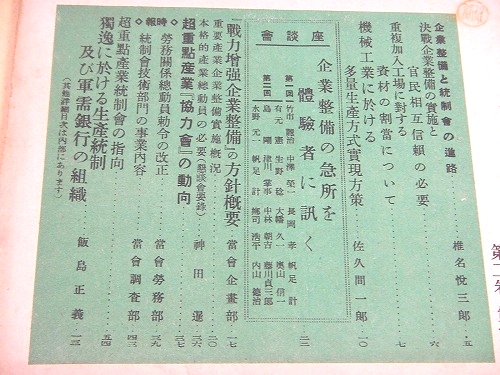 企業整備と統制會の進路
決戰企業整備の實施と
官民相互信頼の必要……椎名悦三郎…五
重複加入工場に對する……六
資材の割當について……七
機械工業に於ける
多量生産方式實現方策……佐久間一郎…一〇
座談會
企業整備の急所を
體驗者に訊く……二二
第一囘
竹市 中澤榮一 長岡孝 帆足計
有元憲 生野稔 大幡久一 奥山信一
第二囘
島剛 津川 掌事 中林朝吉 藤川貞三郎
水野元 帆足計 郷司浩平 内山德治
『戰力增强企業整備』の方針概要……當會企畫部…一七
重要産業企業整備實施概況……二〇
本格的産業總動員の必要(懇談會要錄)…神田暹…三六
超重點産業『協力會』の動向……三七
時報
◇勞務關係總動員勅令の改正……當會勞務部…三九
◇統制會技術部門の事業内容……當會調査部…四三
超重點産業統制會の指向……五四
獨逸に於ける生産統制
及び軍需銀行の組織……飯島正義…一三
(其他詳細目次は内部にあります)